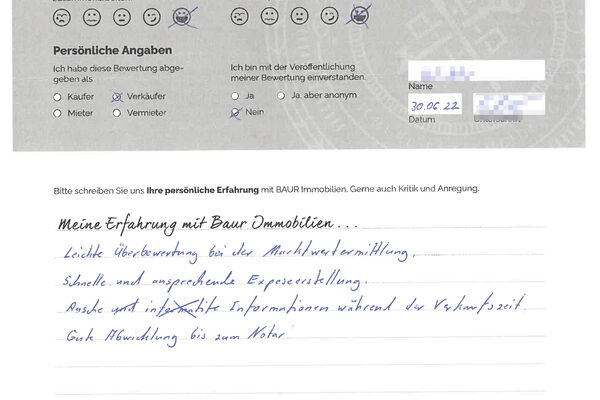 Persönliche Angaben
Ich habe diese Bewertung abge-
geben als
Käufer Verkäufer
Mieter Vermieter
Ich bin mit der Veröffentlichung
meiner Bewertung einverstanden.
Ja Ja, aber anonym
Nein
Name
30.06.22
Datum Unterschrift
Bitte schreiben Sie uns Ihre persönliche Erfahrung mit BAUR Immobilien. Gerne auch Kritik und Anregung.
Meine Erfahrung mit Baur Immobilien...
Leichte Überbewertung bei der Marktwertermittlung.
Schnelle und ansprechende Exposeerstellung.
Rasche und Informationen während der Verkaufszeit.
Gute Abwicklung bis zum Notar